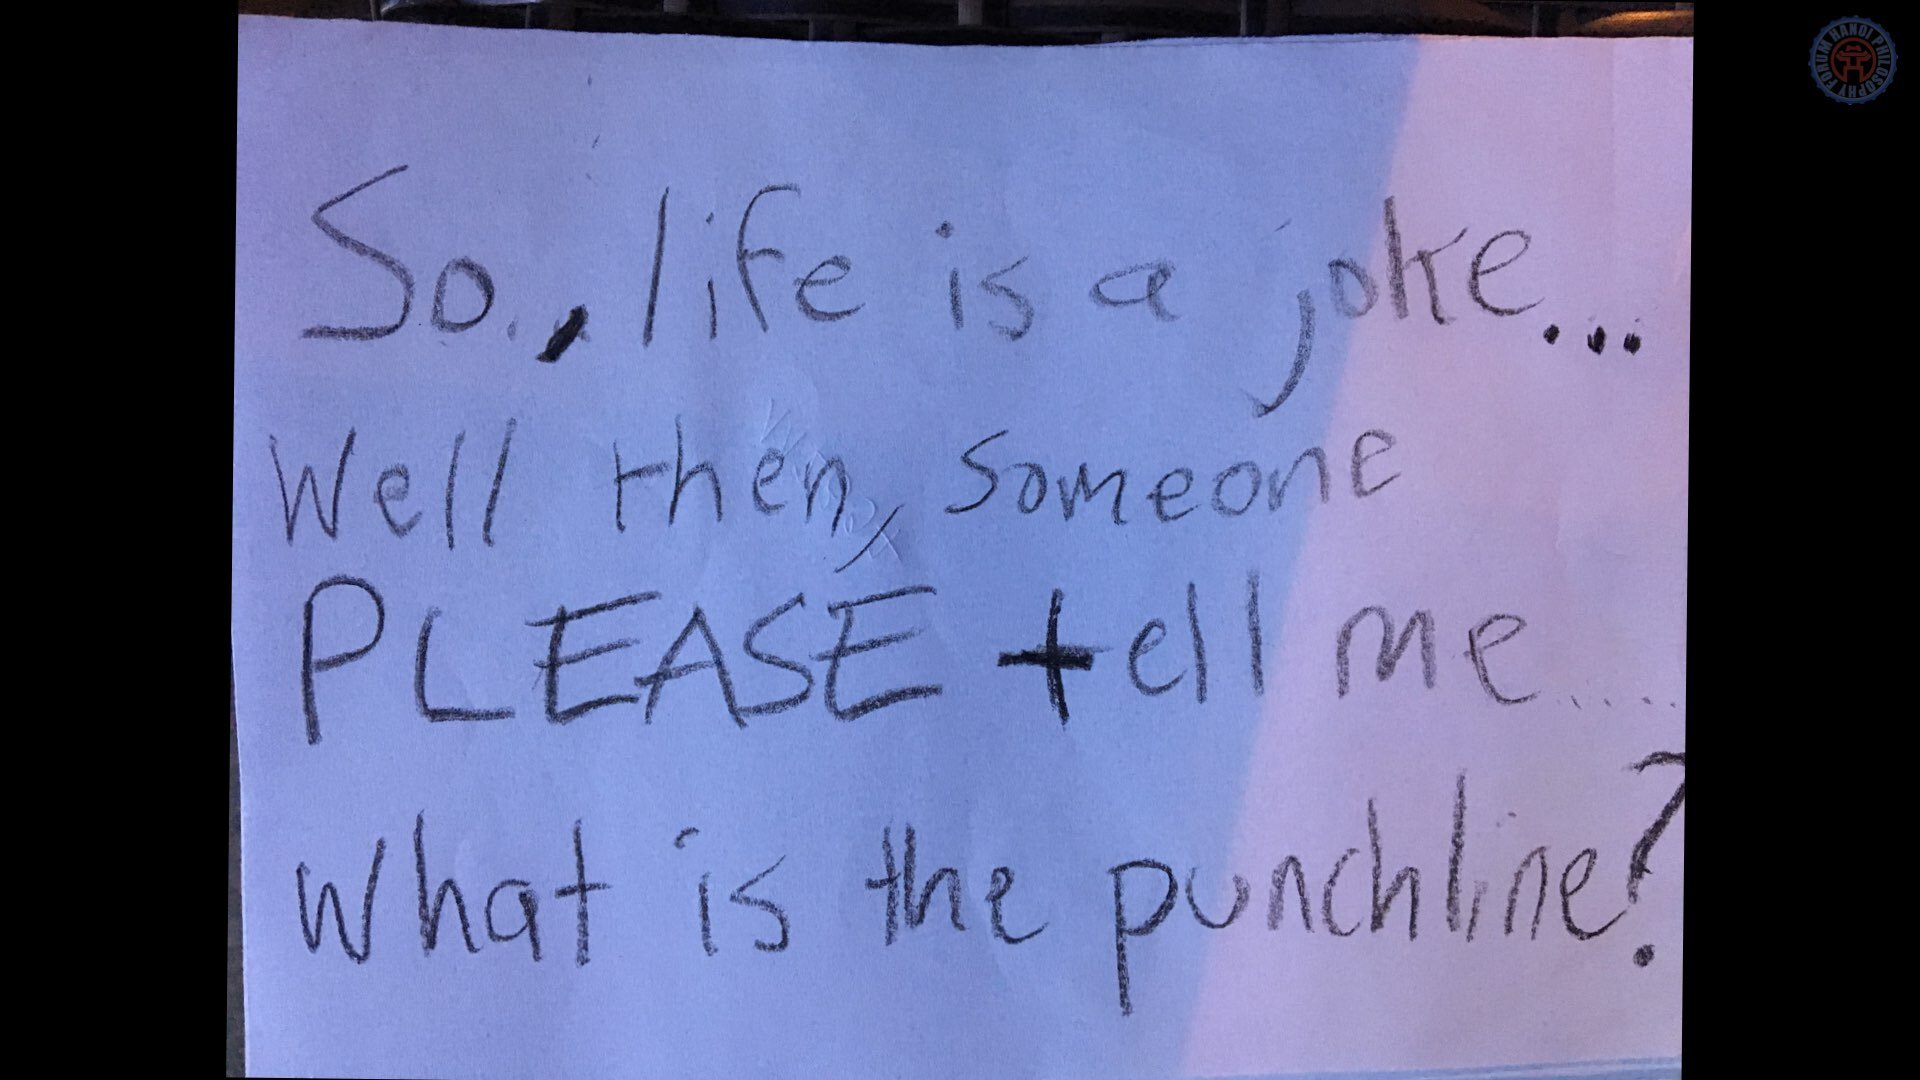 So., life is a joke...
Well then, someone
PLEASE tell me.....
what is the punchline?
FORUM HANOI PHILOSOPHY